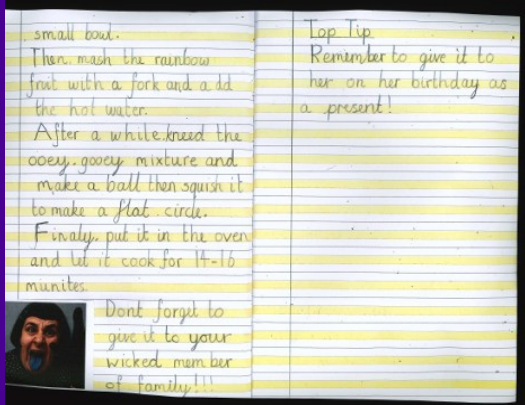 small bowl.
Then, mash the rainbow
fruit with a fork and add
the hot water.
After a while, kneed the
ooey, gooey mixture and
make a ball then squish it
to make a flat circle.
Finaly, put it in the oven
and let it cook for 14-16
munites.
Dont forget to
give it to your
wicked member
of family!!!
Top Tip
Remember to give it to
her on her birthday as
a present!